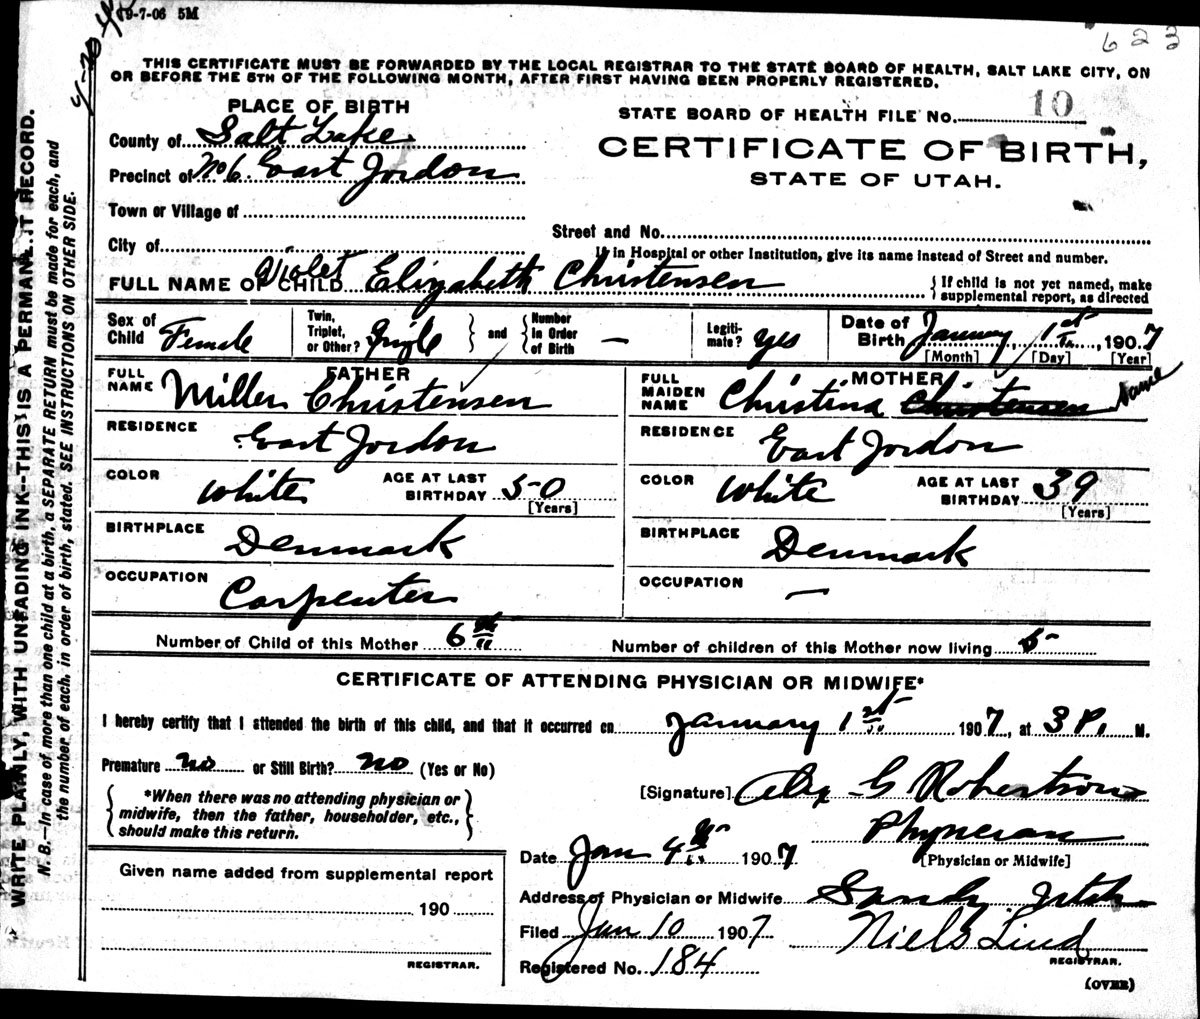 9-7-06 5M
622
THIS CERTIFICATE MUST BE FORWARDED BY THE LOCAL REGISTRAR TO THE STATE BOARD OF HEALTH, SALT LAKE CITY, ON
OR BEFORE THE 5TH OF THE FOLLOWING MONTH, AFTER FIRST HAVING BEEN PROPERLY REGISTERED.
PLACE OF BIRTH
STATE BOARD OF HEALTH FILE NO. 10
County of Salt Lake
CERTIFICATE OF BIRTH,
Precinct of No 6 East Jordon
STATE OF UTAH.
Town or Village of
Street and No.
City of
If in Hospital or other Institution, give its name instead of Street and number.
FULL NAME OF CHILD Violet Elizabeth Christensen { If child is not yet named, make supplemental report, as directed
Sex of Child Female
Twin, Triplet, or Other? Single } and { Number in Order of Birth —
Legitimate? Yes
Date of Birth January 1st, 1907
[Month] [Day] [Year]
FATHER
FULL NAME Miller Christensen
RESIDENCE East Jordon
COLOR White AGE AT LAST BIRTHDAY 50
[Years]
BIRTHPLACE Denmark
OCCUPATION Carpenter
MOTHER
FULL MAIDEN NAME Christina Christensen Name
RESIDENCE East Jordon
COLOR White AGE AT LAST BIRTHDAY 39
[Years]
BIRTHPLACE Denmark
OCCUPATION —
Number of Child of this Mother 6th Number of children of this Mother now living 5
CERTIFICATE OF ATTENDING PHYSICIAN OR MIDWIFE*
I hereby certify that I attended the birth of this child, and that it occurred on January 1st 1907, at 3 P. M.
Premature no or Still Birth? no (Yes or No)
*When there was no attending physician or
midwife, then the father, householder, etc.,
should make this return.
[Signature] Alex G Robertson
Physician
[Physician or Midwife]
Date Jan 4th 1907
Address of Physician or Midwife Sandy Utah
Filed Jan 10 1907 Niels Lind
REGISTRAR.
Registered No. 184
(OVER)
Given name added from supplemental report
190
REGISTRAR.
WRITE PLAINLY, WITH UNFADING INK—THIS IS A PERMANENT RECORD.
N. B.—In case of more than one child at a birth, a SEPARATE RETURN must be made for each, and
the number of each, in order of birth, stated. SEE INSTRUCTIONS ON OTHER SIDE.